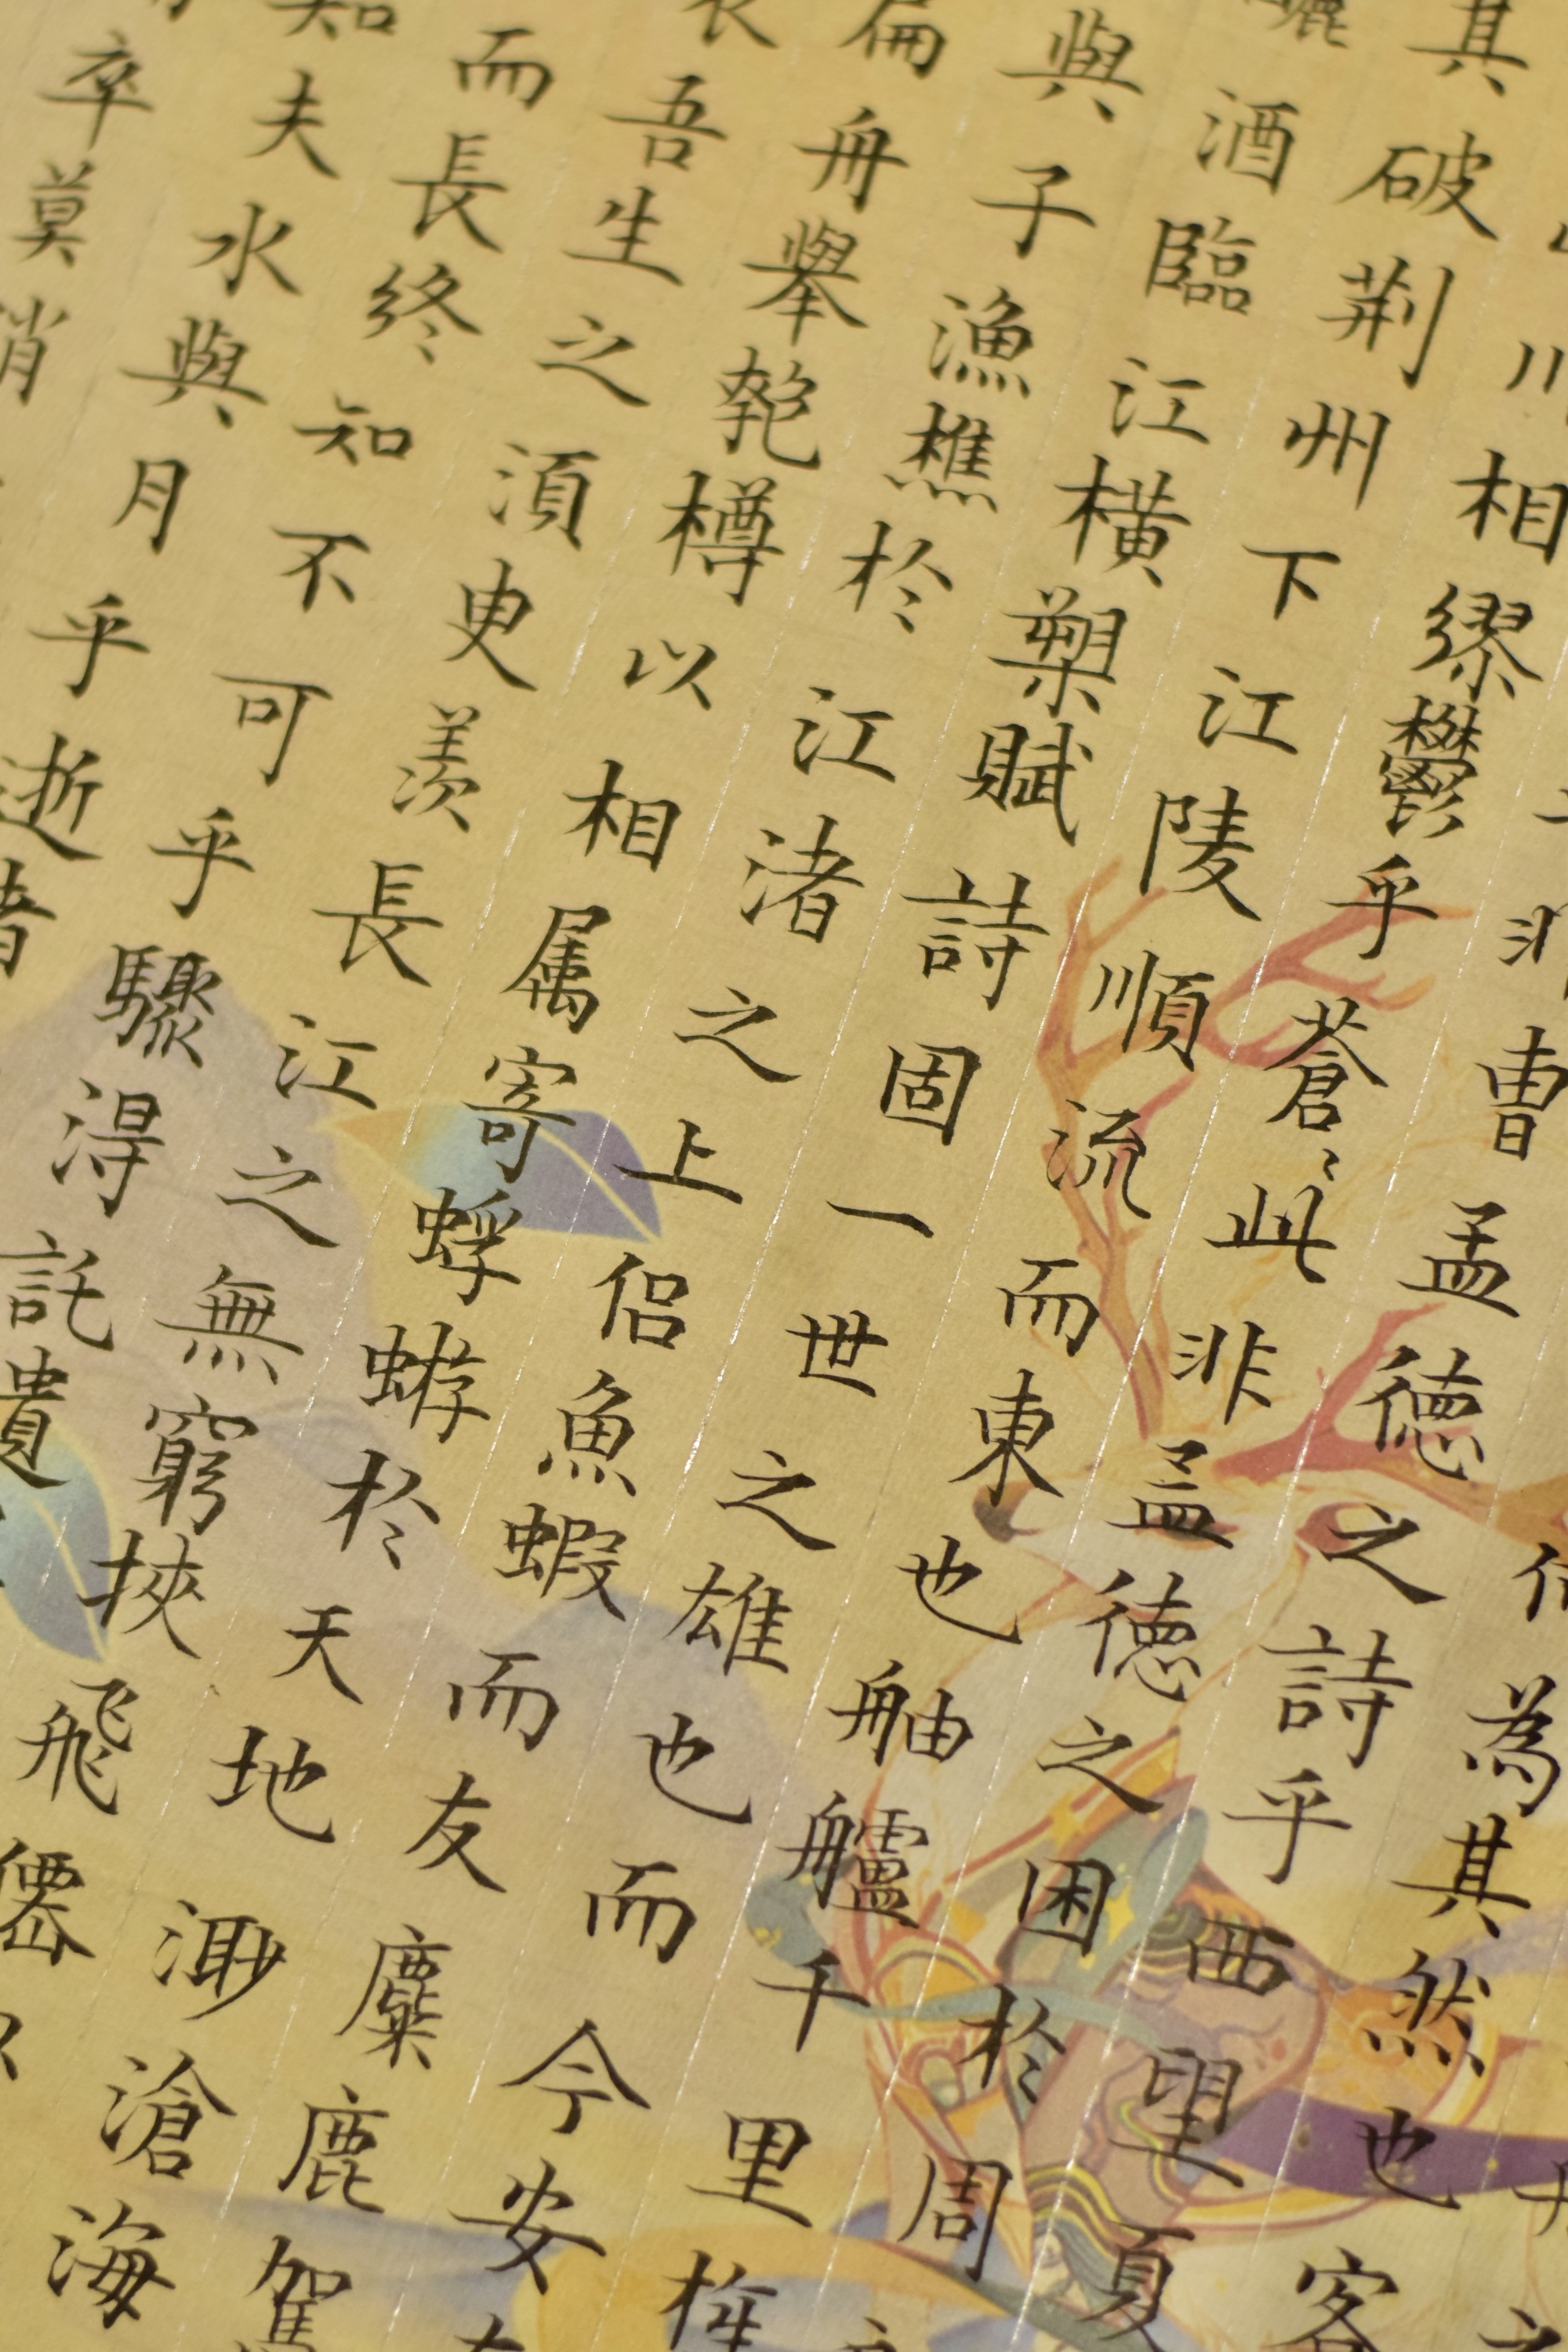 何為其然也客
非曹孟徳之詩乎西望夏
川相繆鬱乎蒼〻此非孟徳之困扵周
其破荆州下江陵順流而東也舳艫千里旌
酒臨江横槊賦詩固一世之雄也而今安
與子漁樵扵江渚之上侶魚蝦而友麋鹿駕
扁舟舉匏樽以相属寄蜉蝣扵天地渺滄海
吾生之須臾羡長江之無窮挾飛僊
而長終知不可乎驟淂託遺
知夫水與月乎逝者
卒莫消